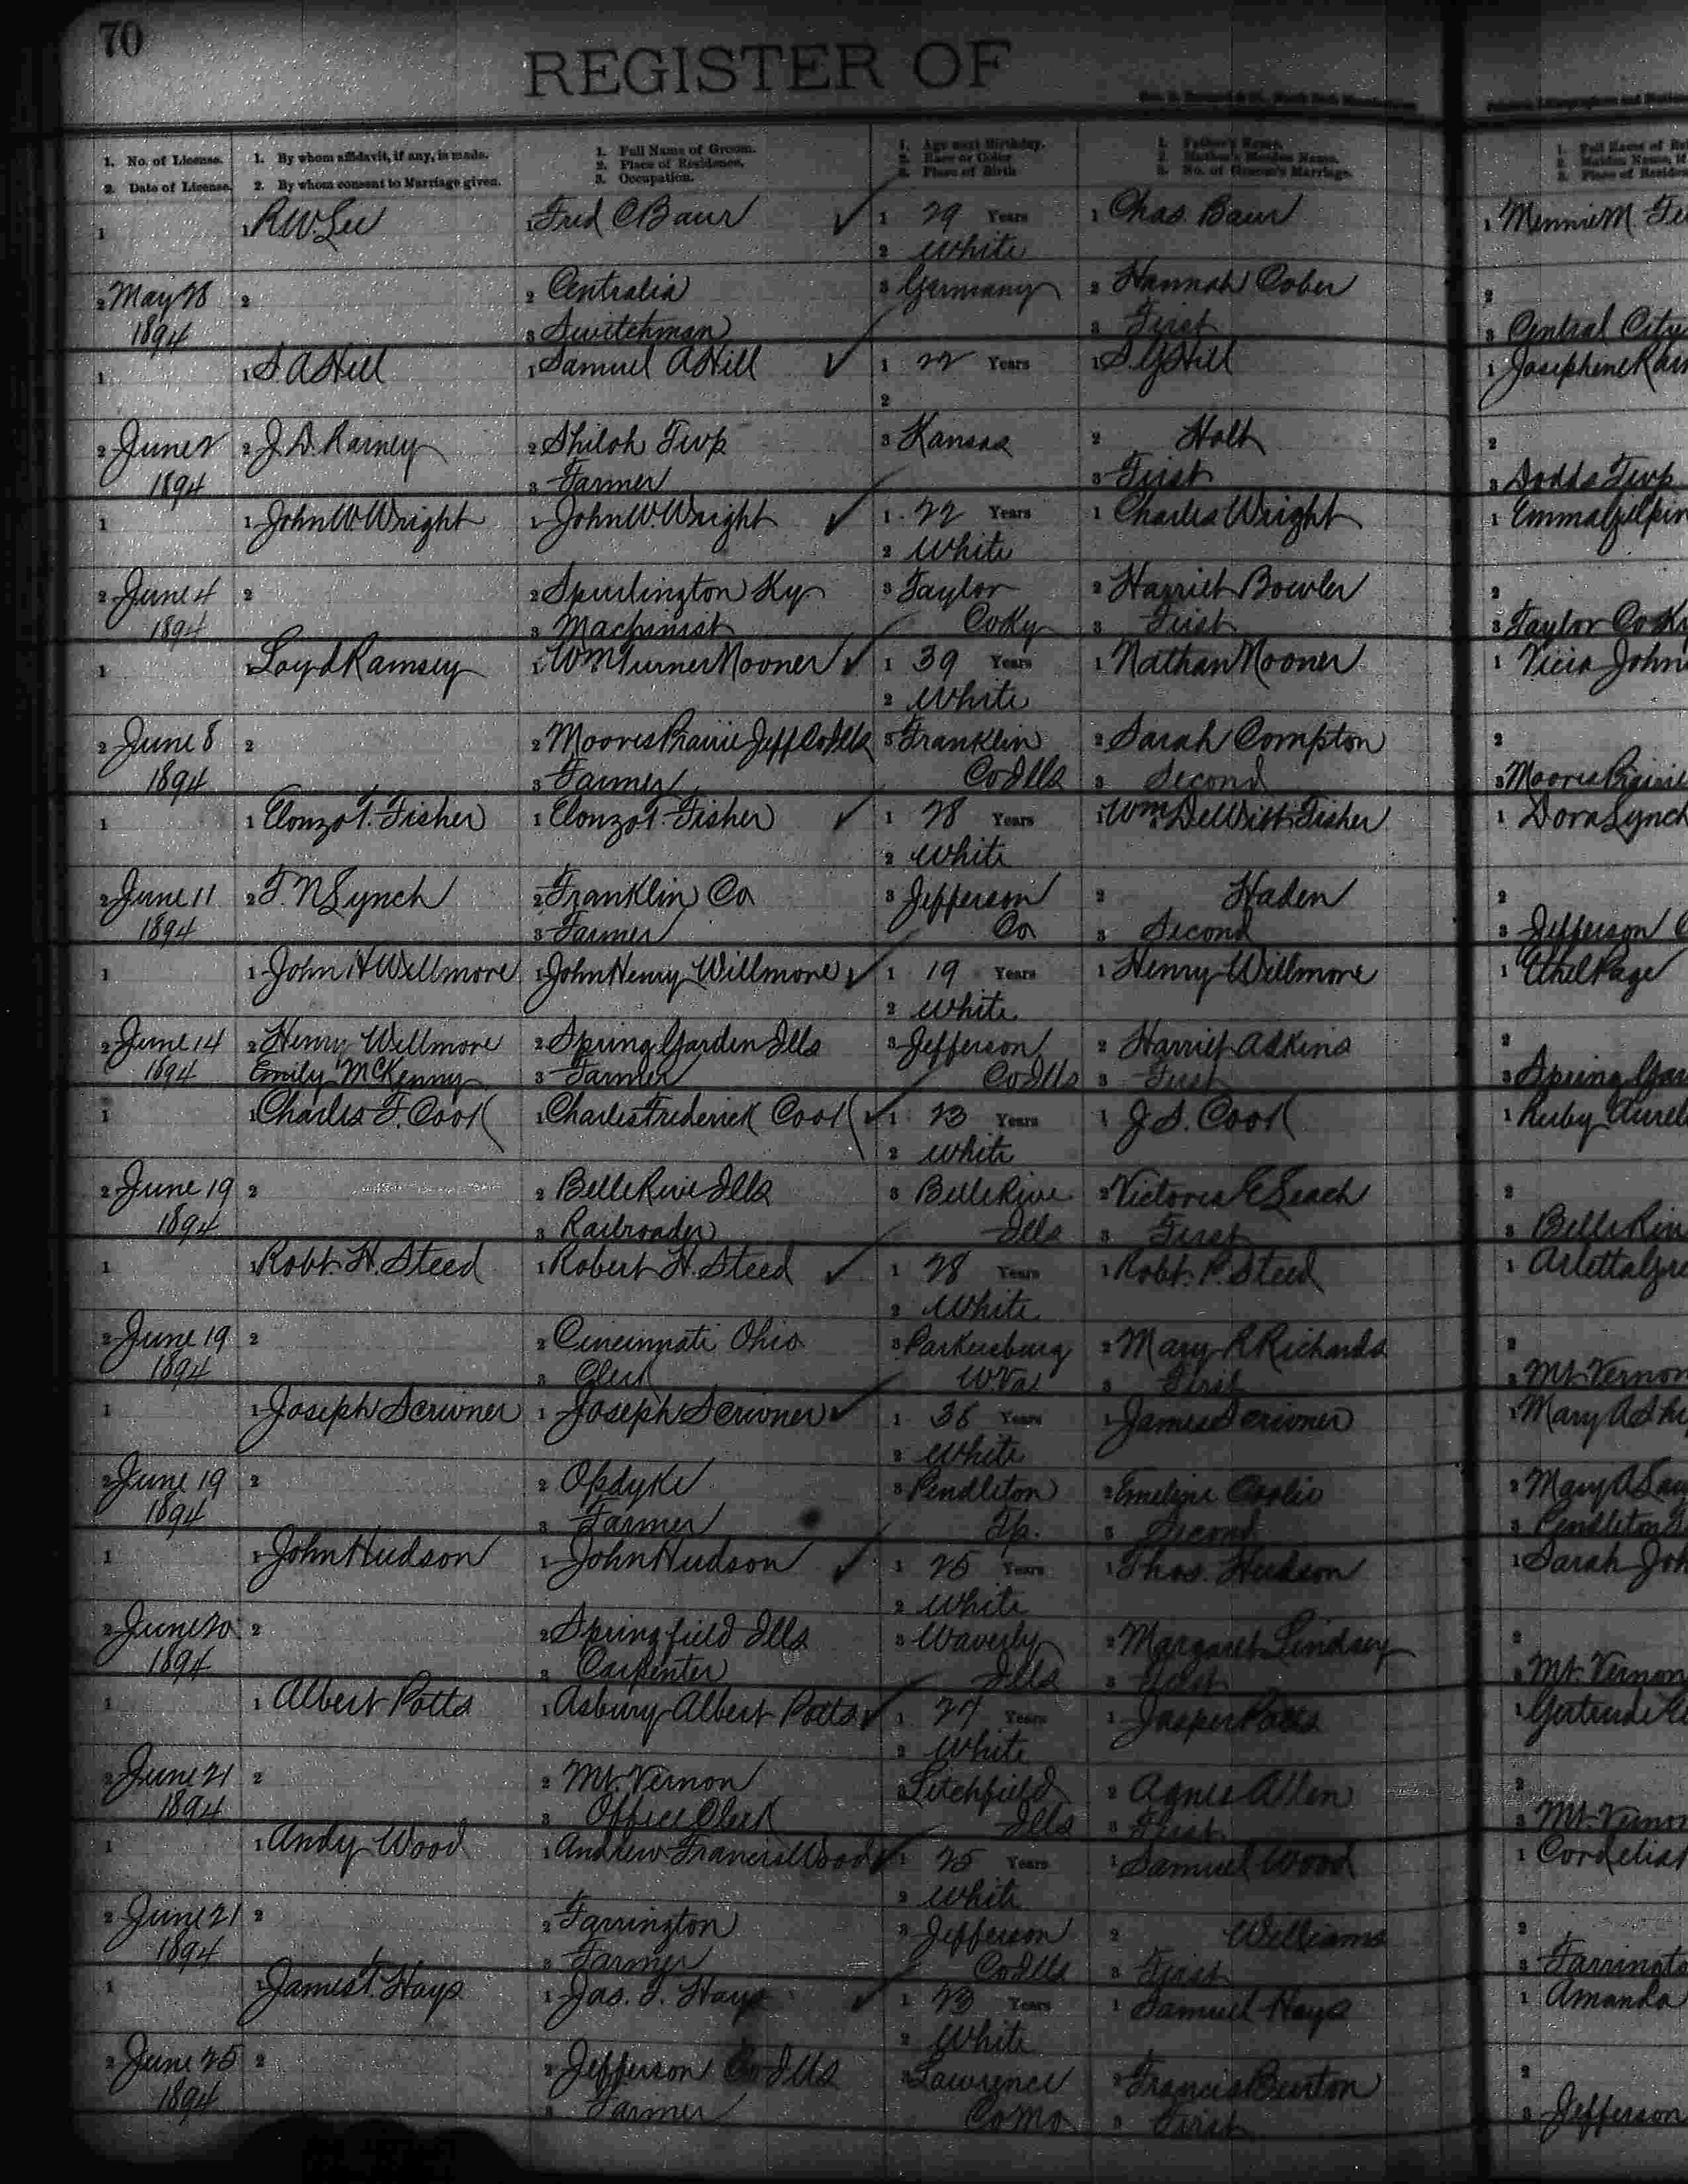 70
REGISTER OF
1. No. of License.
2. Date of License.
1. By whom affidavit, if any, is made.
2. By whom consent to Marriage given.
1. Full Name of Groom.
2. Place of Residence.
3. Occupation.
1. Age next Birthday.
2. Race or Color
3. Place of Birth
1. Father's Name.
2. Mother's Maiden Name.
3. No. of Groom's Marriage.
1 1 R.W. Lee 1 Fred C Baur ✓ 1 29 Years 1 Chas. Baur 1 Mennie M
2 White
2 May 28 2 2 Centralia 3 Germany 2 Hannah Cober 2
1894 3 Switchman 3 First 3 Central City
1 1 S A Hill 1 Samuel A Hill ✓ 1 22 Years 1 S. G Hill 1 Josephine
2
2 June 2 2 J. D. Rainey 2 Shiloh Twp 3 Kansas 2 Holt 2
1894 3 Farmer 3 First 3 Dodds Twp
1 1 John W. Wright 1 John W. Wright ✓ 1 22 Years 1 Charles Wright 1 Emma Gilpin
2 White
2 June 4 2 2 Spurlington Ky 3 Taylor 2 Harriet Bowler 2
1894 3 Machinist Co Ky 3 First 3 Taylor Co Ky
1 1 Loyd Ramsey 1 Wm Turner Mooner ✓ 1 39 Years 1 Nathan Mooner 1 Vicia John
2 White
2 June 8 2 2 Moores Prairie Jeff Co Ills 3 Franklin 2 Sarah Compton 2
1894 3 Farmer Co Ills 3 Second 3 Moores Prairie
1 1 Elonzo T. Fisher 1 Elonzo T. Fisher ✓ 1 28 Years 1 Wm DeWitt Fisher 1 Dora Lynch
2 White
2 June 11 2 T. N Lynch 2 Franklin Co 3 Jefferson 2 Haden 2
1894 3 Farmer Co 3 Second 3 Jefferson C
1 1 John H Willmore 1 John Henry Willmore ✓ 1 19 Years 1 Henry Willmore 1 Ethel Page
2 White
2 June 14 2 Henry Willmore 2 Spring Garden Ills 3 Jefferson 2 Harriet Adkins 2
1894 Emily McKenny 3 Farmer Co Ills 3 First 3 Spring Gar
1 1 Charles F. Cook 1 Charles Frederick Cook ✓ 1 23 Years 1 J. S. Cook 1 Ruby Aurel
2 White
2 June 19 2 2 Belle Rive Ills 3 Belle Rive 2 Victoria E Leach 2
1894 3 Railroader Ills 3 First 3 Belle Riv
1 1 Robt. H. Steed 1 Robert H. Steed ✓ 1 28 Years 1 Robt. P. Steed 1 Arletta
2 White
2 June 19 2 2 Cincinnati Ohio 3 Parkersburg 2 Mary R Richards 2
1894 3 Clerk W.Va 3 First 3 Mt Vernon
1 1 Joseph Scrivner 1 Joseph Scrivner ✓ 1 36 Years 1 James Scrivner 1 Mary A
2 White
2 June 19 2 2 Opdyke 3 Pendleton 2 Emeline 2 Mary A
1894 3 Farmer Tp. 3 Second 3 Pendleton
1 1 John Hudson 1 John Hudson ✓ 1 25 Years 1 Thos. Hudson 1 Sarah Joh
2 White
2 June 20 2 2 Springfield Ills 3 Waverly 2 Margaret Lindsey 2
1894 3 Carpenter Ills 3 First 3 Mt. Vernon
1 1 Albert Potts 1 Asbury Albert Potts ✓ 1 27 Years 1 Jasper Potts 1 Gertrude
2 White
2 June 21 2 2 Mt. Vernon 3 Litchfield 2 Agnes Allen 2
1894 3 Office Clerk Ills 3 First 3 Mt. Vernon
1 1 Andy Wood 1 Andrew Francis Wood ✓ 1 25 Years 1 Samuel Wood 1 Cordelia
2 White
2 June 21 2 2 Farrington 3 Jefferson 2 Williams 2
1894 3 Farmer Co Ills 3 First 3 Farringto
1 1 James T. Hays 1 Jas. T. Hays ✓ 1 23 Years 1 Samuel Hays 1 Amanda
2 White
2 June 25 2 2 Jefferson Co Ills 3 Lawrence 2 Francis Benton 2
1894 3 Farmer Co Mo 3 First 3 Jefferson